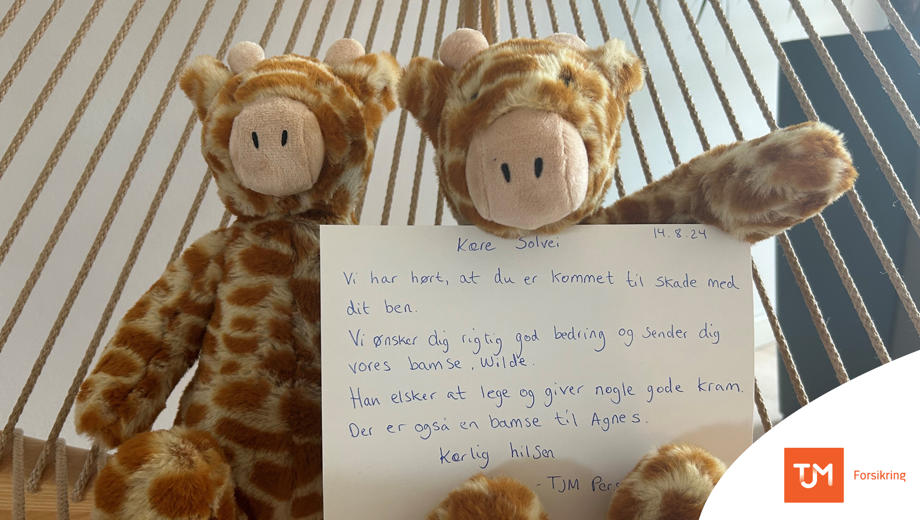 14.8.24
Kære Solvei
Vi har hørt, at du er kommet til skade med
dit ben.
Vi ønsker dig rigtig god bedring og sender dig
vores bamse, Wilde.
Han elsker at lege og giver nogle gode kram.
Der er også en bamse til Agnes.
Kærlig hilsen
- TJM
TJM Forsikring